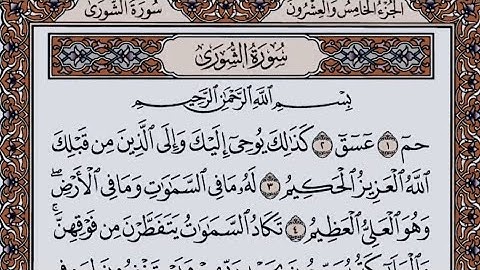 الجزء الخامس والعشرون
سورة الشورى
سُورَةُ الشُّورَىٰ
بِسْمِ اللَّهِ الرَّحْمَٰنِ الرَّحِيمِ
حمٓ ١ عٓسٓقٓ ٢ كَذَٰلِكَ يُوحِىٓ إِلَيْكَ وَإِلَى الَّذِينَ مِن قَبْلِكَ
اللَّهُ الْعَزِيزُ الْحَكِيمُ ٣ لَهُۥ مَا فِى السَّمَٰوَٰتِ وَمَا فِى الْأَرْضِ ۖ
وَهُوَ الْعَلِىُّ الْعَظِيمُ ٤ تَكَادُ السَّمَٰوَٰتُ يَتَفَطَّرْنَ مِن فَوْقِهِنَّ ۚ